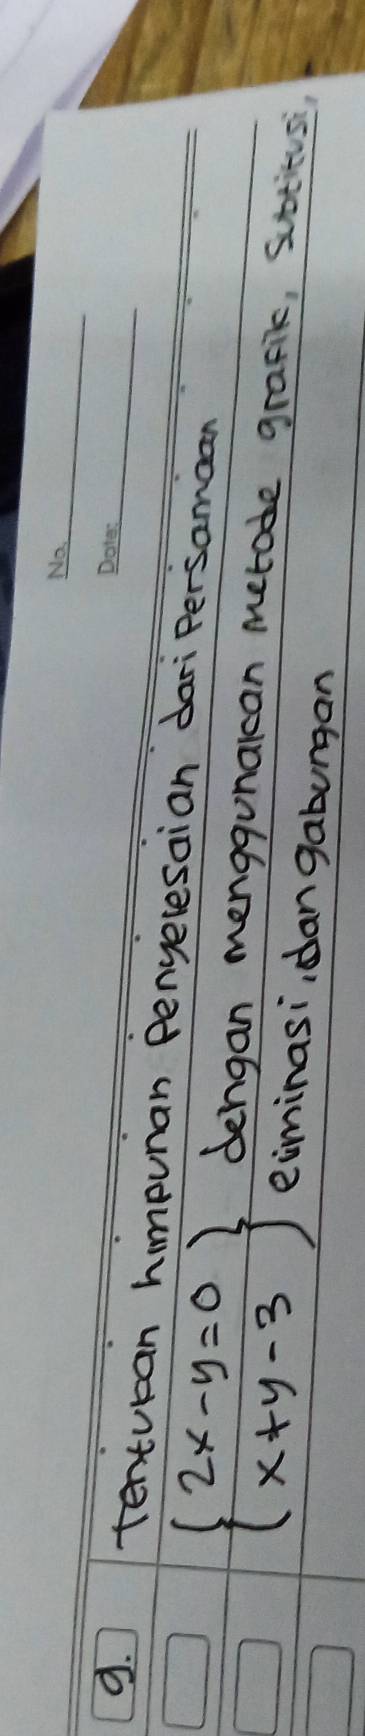 No.
Date:
9. Tentukan himpunan Penyelesaian dari Persamaan
{ 2x - y = 0 } dengan menggunakan metode grafik, Subtitusi,
{ x + y - 3 } eliminasi, dan gabungan